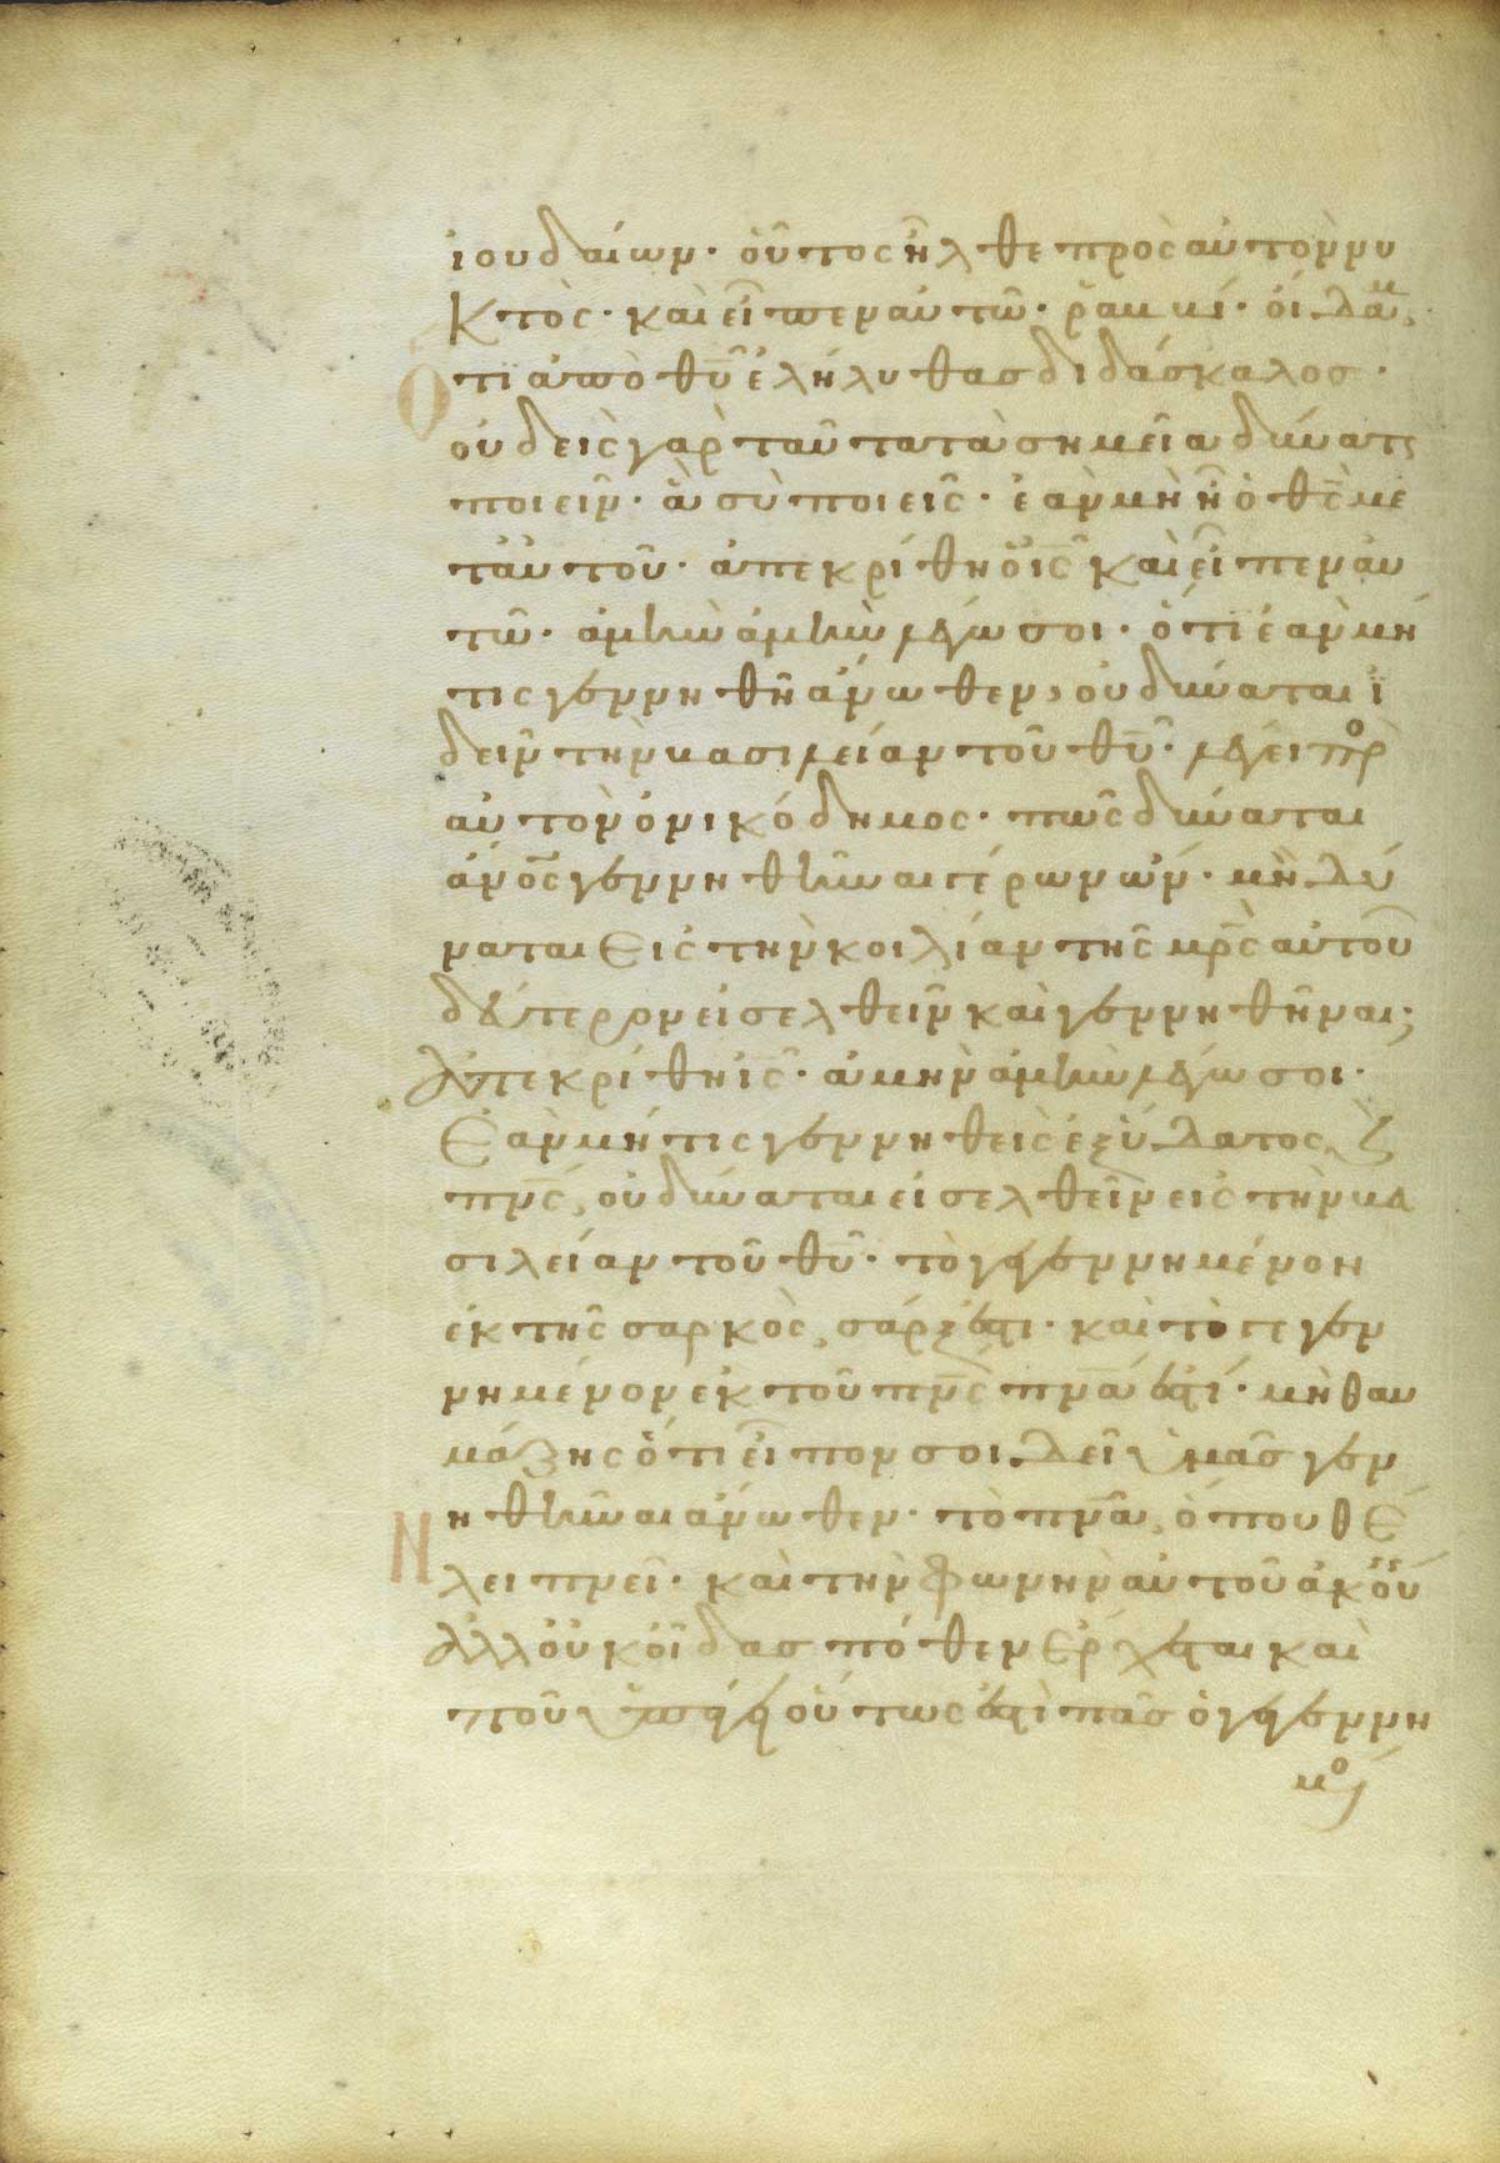 ἰουδαίων· οὗτος ἦλθε πρὸς αὐτὸν νυ
κτὸς· καὶ εἶπεν αὐτῶ· ῥαββί· οἴδαμ
ὅτι ἀπὸ θῦ ἐλήλυθας διδάσκαλος·
οὐδεὶς γὰρ ταῦτα τὰ σημεῖα δύνατ
ποιεῖν· ἃ σὺ ποιεῖς· ἐὰν μὴ ἦ ὁ θς με
τ' αὐτοῦ· ἀπεκρίθη ὁ ις καὶ εἶπεν αὐ
τῶ· ἀμὴν ἀμὴν λέγω σοι· ὅτι ἐὰν μή
τις γεννηθῆ ἄνωθεν, οὐ δύναται ἰ
δεῖν τὴν βασιλείαν τοῦ θῦ· λέγει πρ
αὐτὸν ὁ νικόδημος· πῶς δύναται
ἄνος γεννηθῆναι γέρων ὤν· μὴ δύ
ναται εἰς τὴν κοιλίαν τῆς μρς αὐτοῦ
δεύτερον εἰσελθεῖν καὶ γεννηθῆναι;
Ἀπεκρίθη ις· ἀμὴν ἀμὴν λέγω σοι·
Ἐὰν μή τις γεννηθεὶς ἐξ ὕδατος ϗ
πνς, οὐ δύναται εἰσελθεῖν εἰς τὴν βα
σιλείαν τοῦ θῦ· τὸ γεγεννημένον
ἐκ τῆς σαρκὸς, σάρξ ἐστι· καὶ τὸ γεγεν
νημένον ἐκ τοῦ πνς πνα ἐστί· μὴ θαυ
μάζης ὅτι εἶπον σοι δεῖ ὑμᾶς γεν
νηθῆναι ἄνωθεν· τὸ πνα, ὅπου θέ
λει πνεῖ· καὶ τὴν φωνὴν αὐτοῦ ἀκού
Ἀλλ' οὐκ οἶδας πόθεν ἔρχεται καὶ
ποῦ ὑπάγει οὕτως ἐστὶ πᾶς ὁ γεγεννη
μο